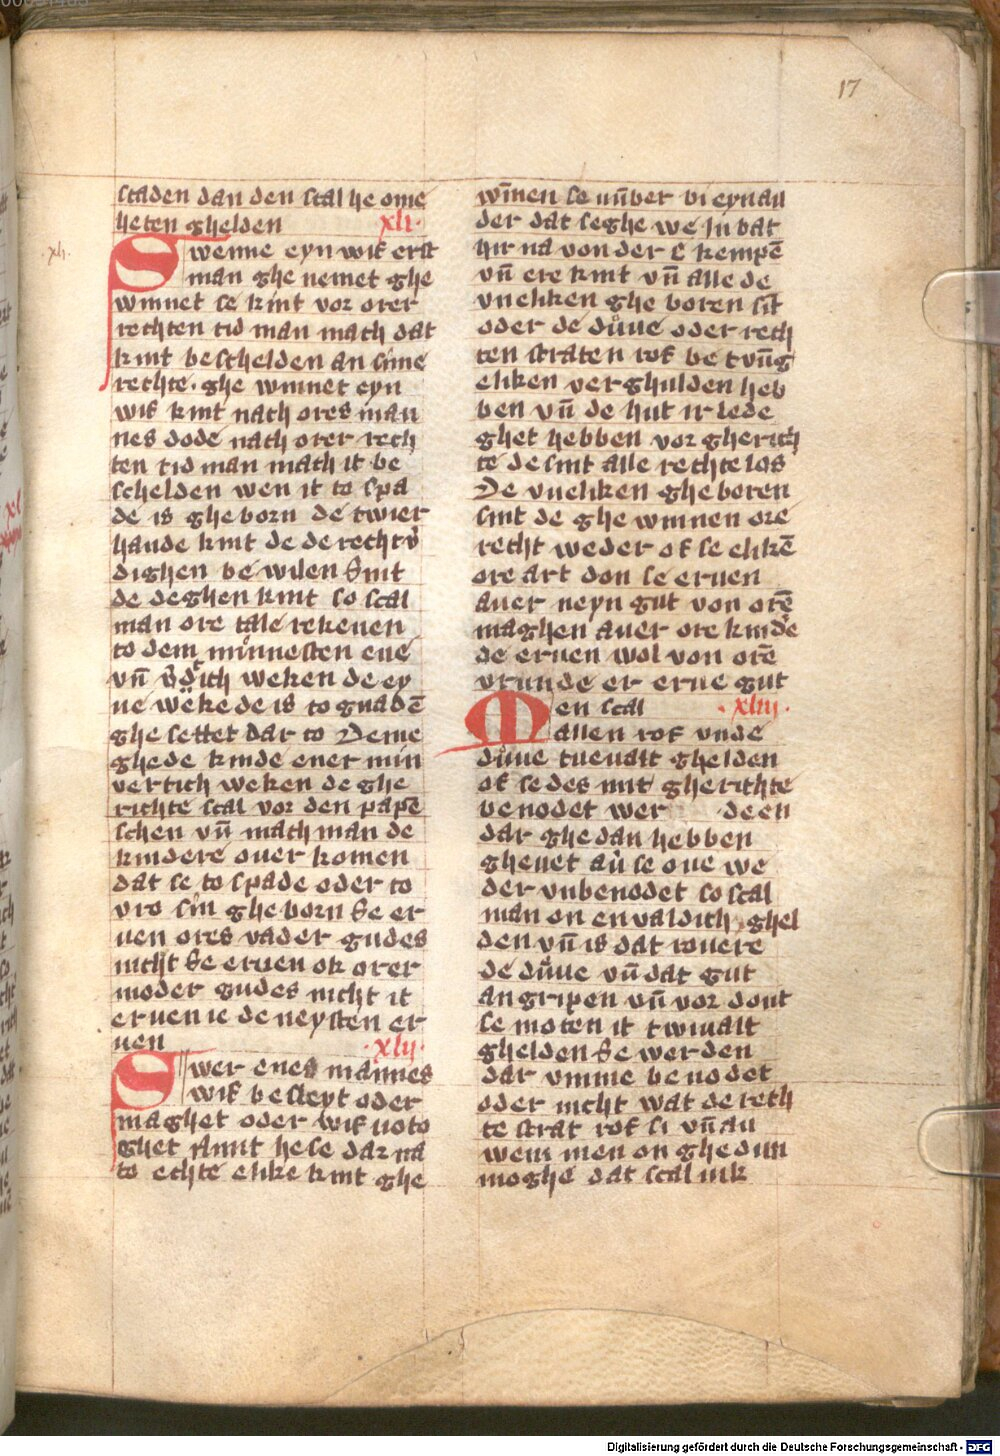 17
staden dan den scal he ome
heten ghelden xli.
Swenne eyn wif erst
man ghe nemet ghe
winnet se kint vor orer
rechten tid man mach dat
kint beschelden an sime
rechte. ghe winnet eyn
wif kint nach ores man
nes dode nach orer rech
ten tid man mach it be
schelden wen it to spa
de is gheborn de twier
hande kint de de rechtv̊
dighen be wilen Sint
de deghen kint so scal
man ore tale rekenen
to dem minnesten ene
vn̄ weken de ey
ne weke de is to gnadē
ghe settet dar to Deme
ghede kinde ener min
vertich weken de ghe
richte scal vor den papē
schen vn̄ mach man de
kindere over komen
dat se to spade oder to
vro sin gheborn Se er
uen ores vader gudes
nicht Se eruen ok orer
moder gudes nicht it
eruen ie de neysten er
uen xlij.
Swer enes mannes
wif besteyt oder
maghet oder wif noto
ghet nimt hese dar na
to echte elike kint ghe
xli.
winnen se nūber bi eynan
der dat seghe we Ju bat
hir na von der kempē
vn̄ ere kint vn̄ alle de
vneliken ghe boren sit
oder de duͤue oder rech
ten straten rof be tvn̄g
eliken verghulden heb
ben vn̄ de hut ir lede
ghet hebben vor gherich
te de sint alle rechtelos
De vneliken gheboren
sint de ghe winnen ore
recht weder of se elikē
ore art don se eruen
auer neyn gut von orē
maghen auer ore kinde
de eruen wol von orē
vrunde er erue gut
Men scal xliij.
allen rof vnde
duͤue tueualt ghelden
of se des mit gherichte
benodet wer de en
dar ghedan hebben
gheuet au se oue we
der vnbenodet so scal
man on envaldich ghel
den vn̄ is dat rouere
de duͤue vn̄ dat gut
angripen vn̄ vor dout
se moten it twiualt
ghelden Se werden
dar vmme benodet
oder nicht wat de rech
te strat rof si vn̄ an
wem men on ghedun
moghe dat scal nik
Digitalisierung gefördert durch die Deutsche Forschungsgemeinschaft - DFG